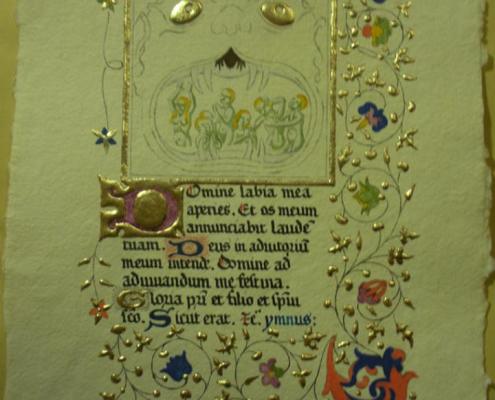 Domine labia mea
aperies. Et os meum
annunciabit laude
tuam. Deus in adiutoriũ
meum intende. Domine ad
adiuvandum me festina.
Gloria pri et filio et spui
sco. Sicut erat. ymnus: